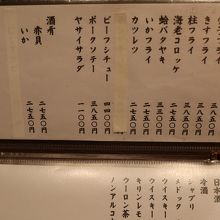 きすフライ 三八五〇円
柱フライ 三八五〇円
海老コロッケ 二七五〇円
蛤バタヤキ 三八五〇円
いかフライ 二七五〇円
カツレツ 二七五〇円
ビーフシチュー 四四〇〇円
ポークソテー 三八五〇円
ヤサイサラダ 一一〇〇円
酒肴
赤貝 二七五〇円
いか 二七五〇円
日本
冷酒
シャブリ
メドック
ウイスキー
ウイスキー
キリンレモ
ウーロン茶
ノンアルコー